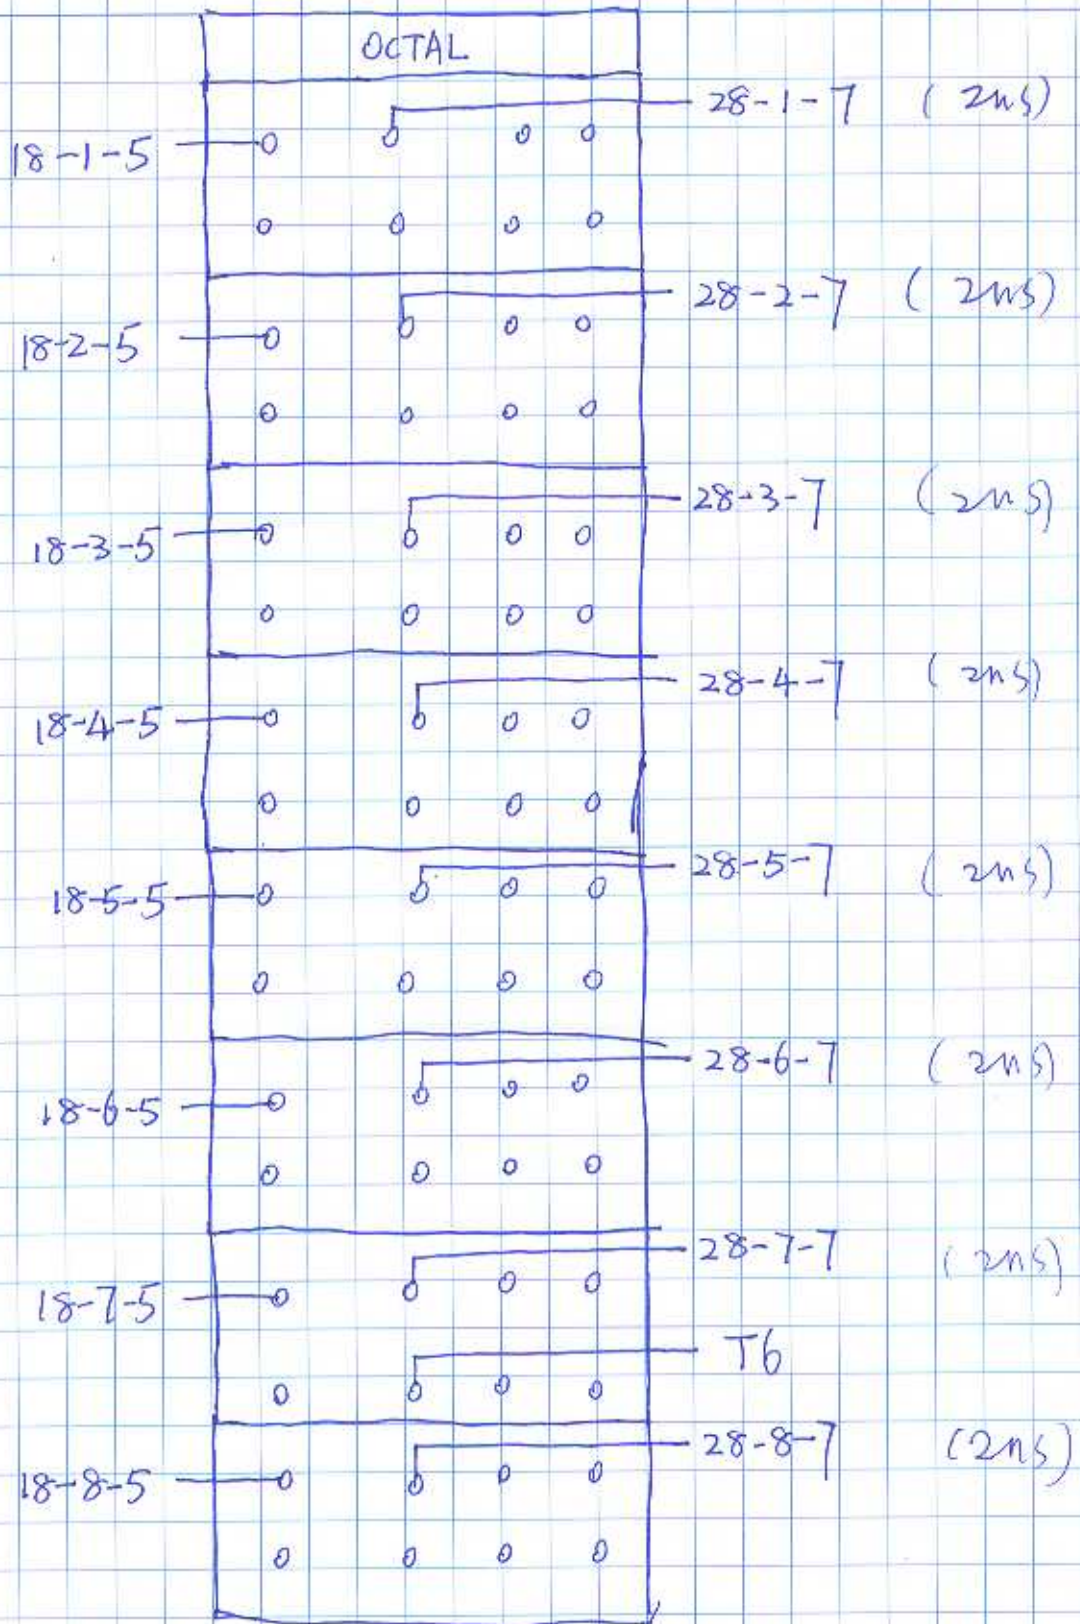 OCTAL
18-1-5 28-1-7 (2ns)
18-2-5 28-2-7 (2ns)
18-3-5 28-3-7 (2ns)
18-4-5 28-4-7 (2ns)
18-5-5 28-5-7 (2ns)
18-6-5 28-6-7 (2ns)
18-7-5 28-7-7 (2ns)
T6
18-8-5 28-8-7 (2ns)